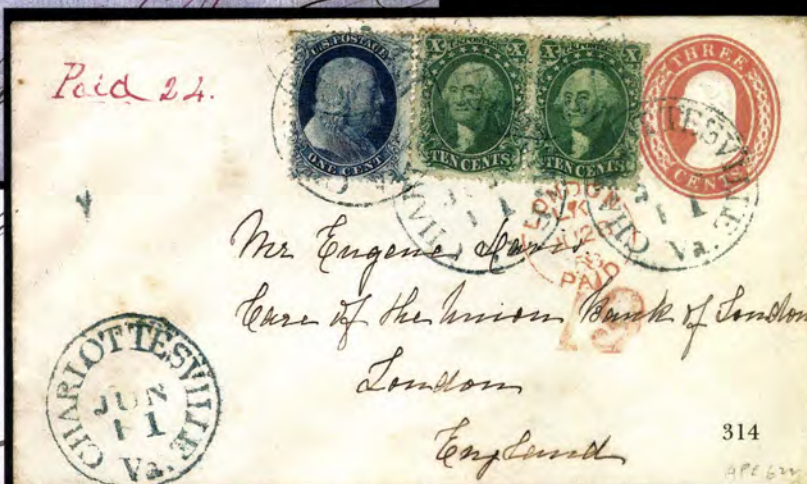 Paid 24.
U.S. POSTAGE
ONE CENT
X X
TEN CENTS
X X
TEN CENTS
THREE
CENTS
LONDON
PAID
19
Mr Eugene Davis
Care of the Union Bank of London
London
England
CHARLOTTESVILLE
JUN
11
Va.
314